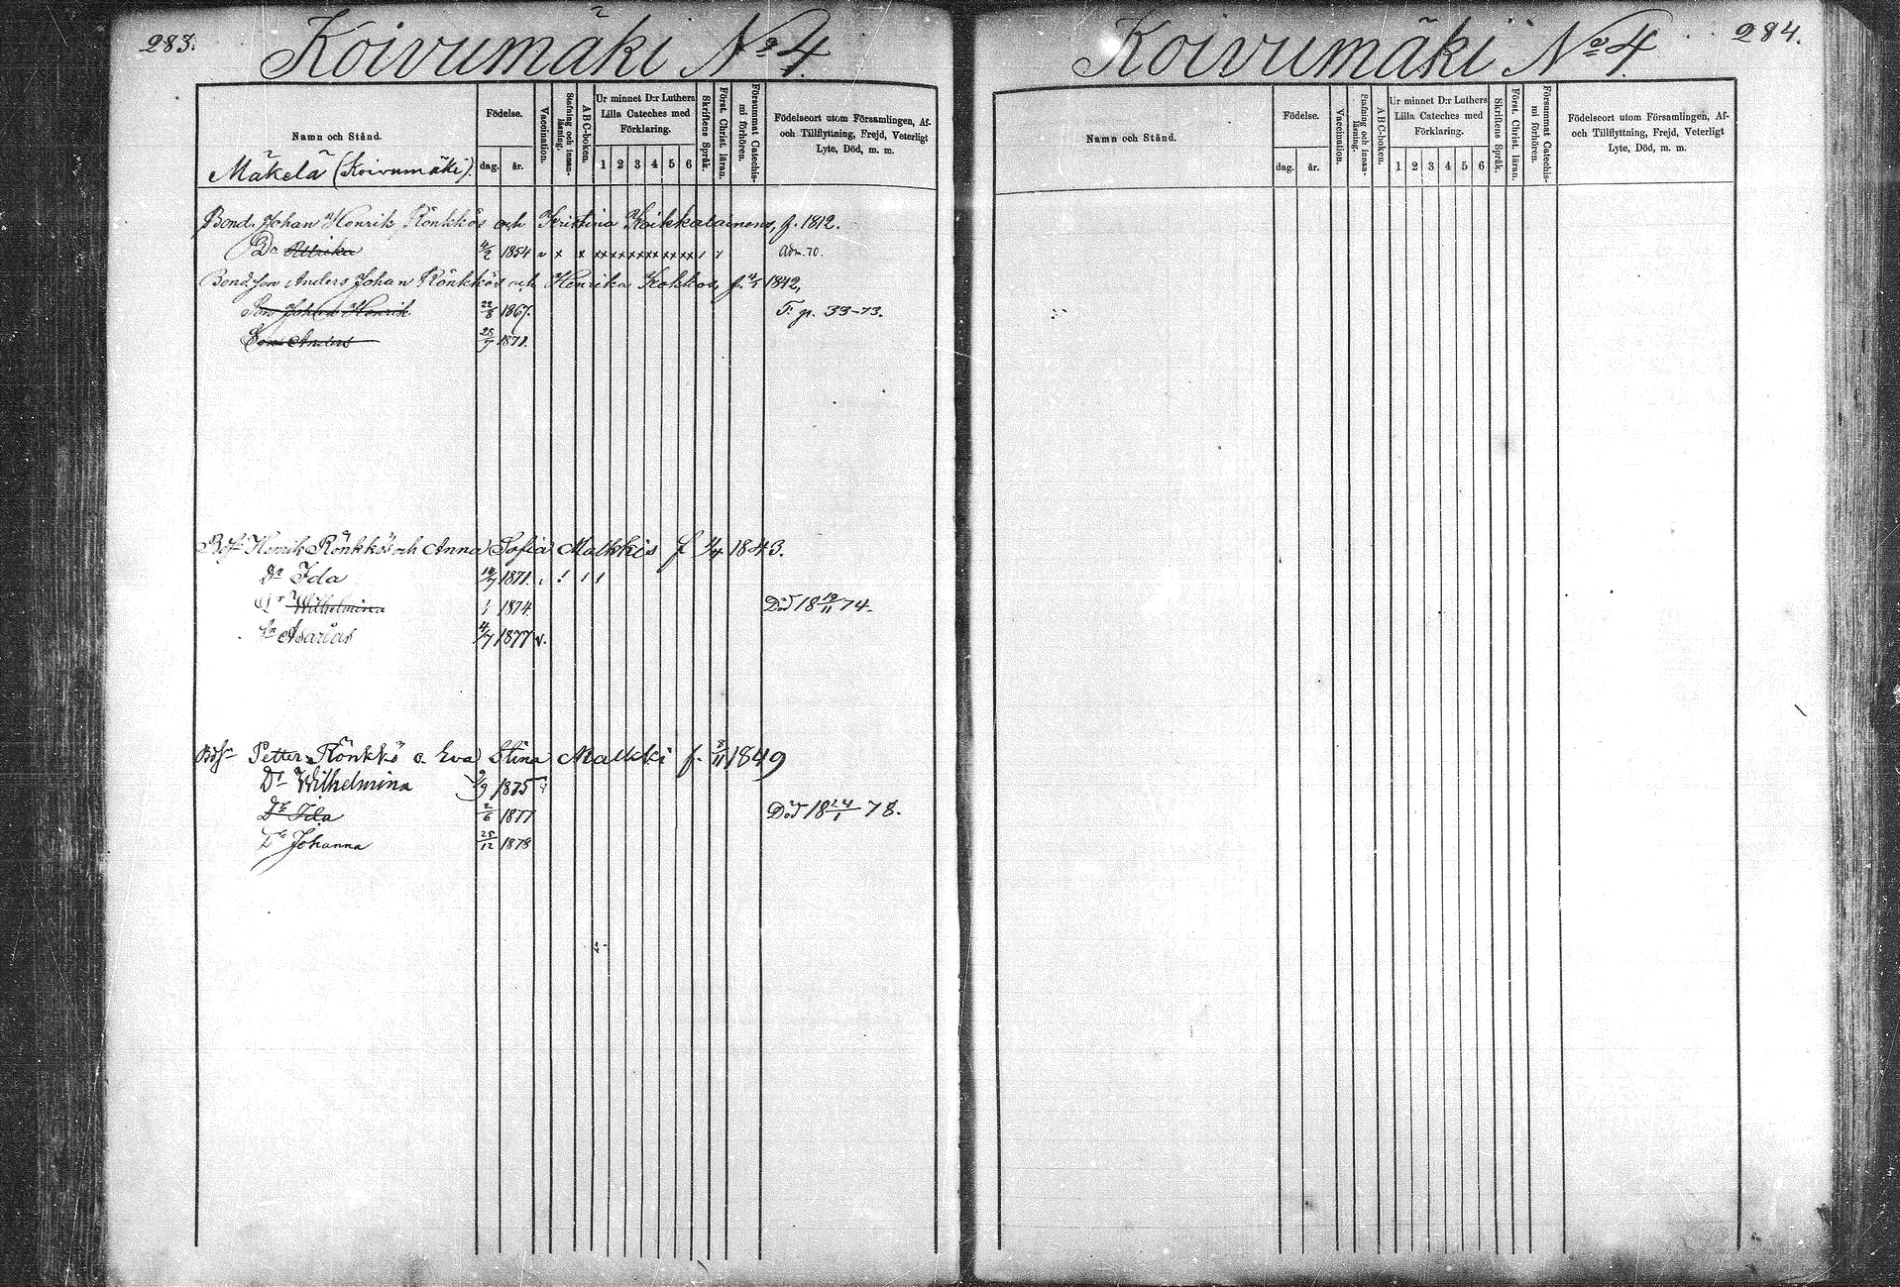 283.
Koivumäki No 4.
Namn och Stånd.
Födelse.
dag.
år.
Vaccination.
Stafning och innan-
läsning.
A B C-boken.
Ur minnet D:r Luthers
Lilla Cateches med
Förklaring.
1 2 3 4 5 6
Skriftens Språk.
Först. Christ. läran.
Försummat Catechis-
mi förhören.
Födelseort utom Församlingen, Af-
och Tillflyttning, Frejd, Veterligt
Lyte, Död, m. m.
Mäkelä (Koivumäki).
Bond. Johan Henrik Rönkkös och Kristina Koikkalainens, f. 1812.
Dr Ulrika 4/2 1854 Adm. 70.
Bond. son Anders Johan Rönkkös och Henrika Kokkos, f. 1842,
Son Johan Henrik 22/8 1867. F. gr. 33-73.
Son Anders 25/9 1871.
Henrik Rönkkös och Anna Sofia Malkkis f 1/4 1843.
Dr Ida 1871.
Dr Wilhelmina 1874. Död 18 19/11 74.
Sn Asarias 4/7 1877 v.
Petter Rönkkö o. Eva Stina Malkki f. 3/11 1849
Dr Wilhelmina 9/9 1875
Dr Ida 2/6 1877 Död 18 24/1 78.
Dr Johanna 25/12 1878
284.
Koivumäki No 4.
Namn och Stånd.
Födelse.
dag.
år.
Vaccination.
Stafning och innan-
läsning.
A B C-boken.
Ur minnet D:r Luthers
Lilla Cateches med
Förklaring.
1 2 3 4 5 6
Skriftens Språk.
Först. Christ. läran.
Försummat Catechis-
mi förhören.
Födelseort utom Församlingen, Af-
och Tillflyttning, Frejd, Veterligt
Lyte, Död, m. m.